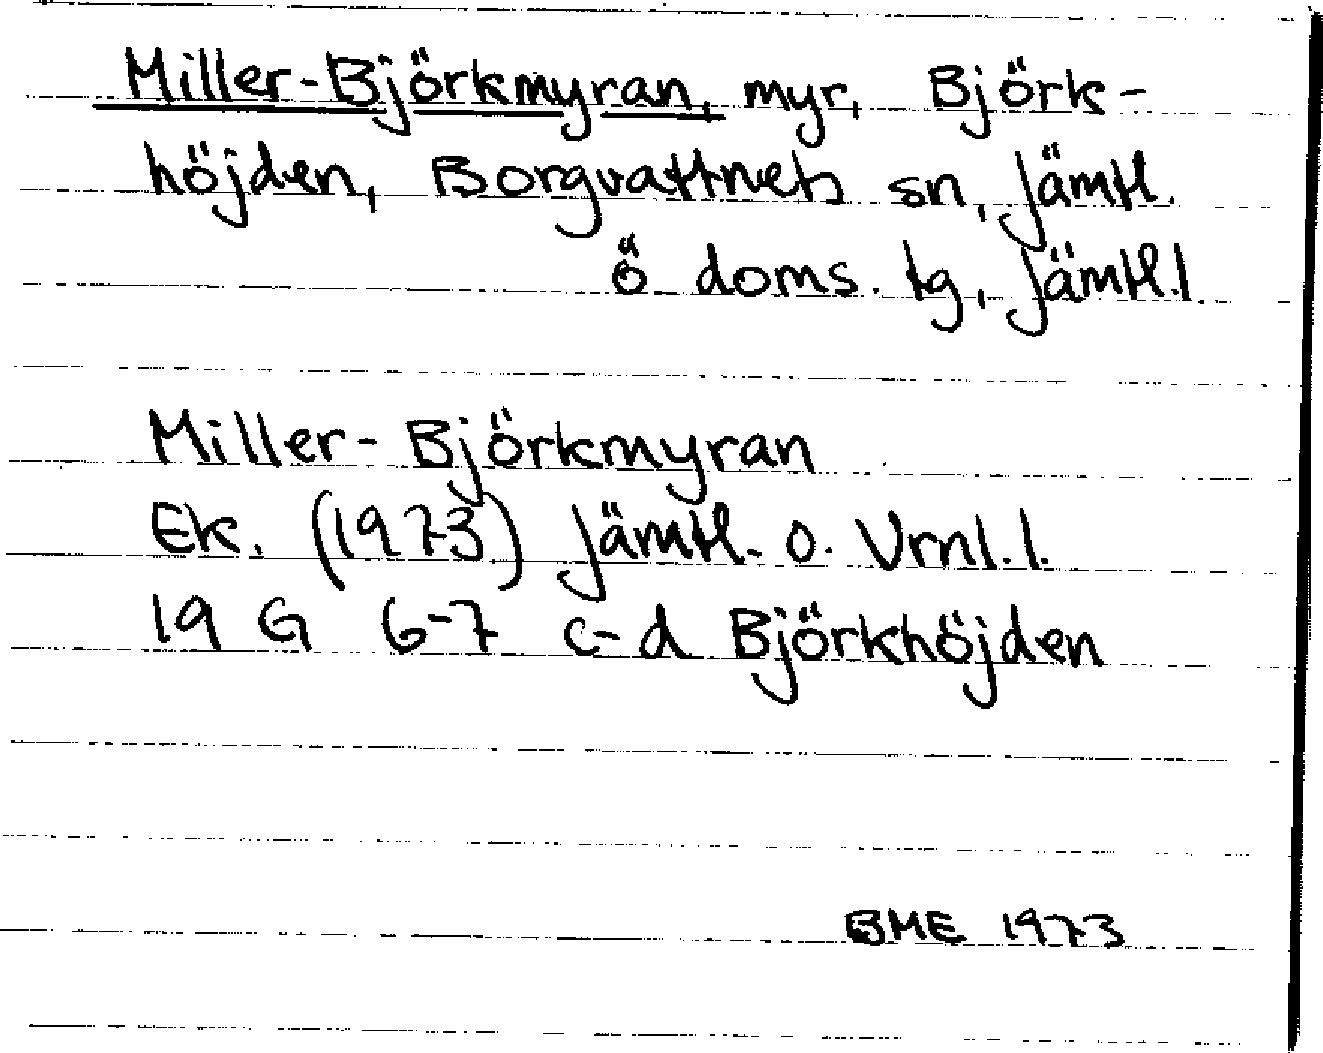 Miller-Björkmyran, myr, Björk-
höjden, Borgvattnets sn, Jämtl.
ö doms. tg, Jämtl.l.
Miller-Björkmyran
Ek. (1973) Jämtl. o. Vrnl.l.
19 G 6-7 c-d Björkhöjden
BME 1973